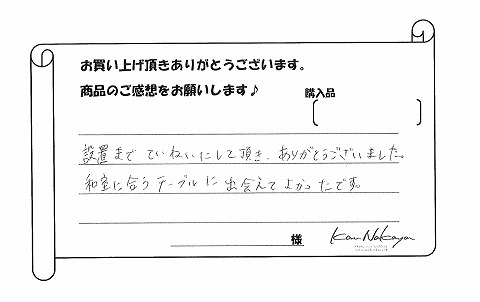 お買い上げ頂きありがとうございます。
商品のご感想をお願いします♪
購入品
設置まで ていねいにして頂き、ありがとうございました。
和室に合うテーブルに 出会えてよかったです。
様